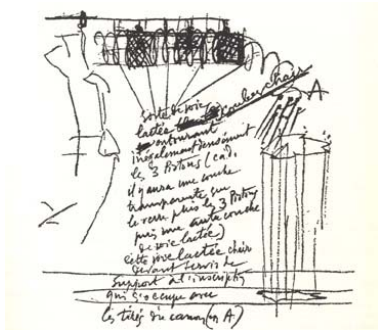 Sorte de voie
lactée chair
A
entourant
inégalement densément
les 3 Pistons (c.a.d.
il y aura une couche
transparente sur
le verre puis les 3 Pistons
puis une autre couche
de voie lactée)
cette voie lactée chair
devant servir de
support à l'inscription
qui s'occupe avec
les tirés du canon (en A)